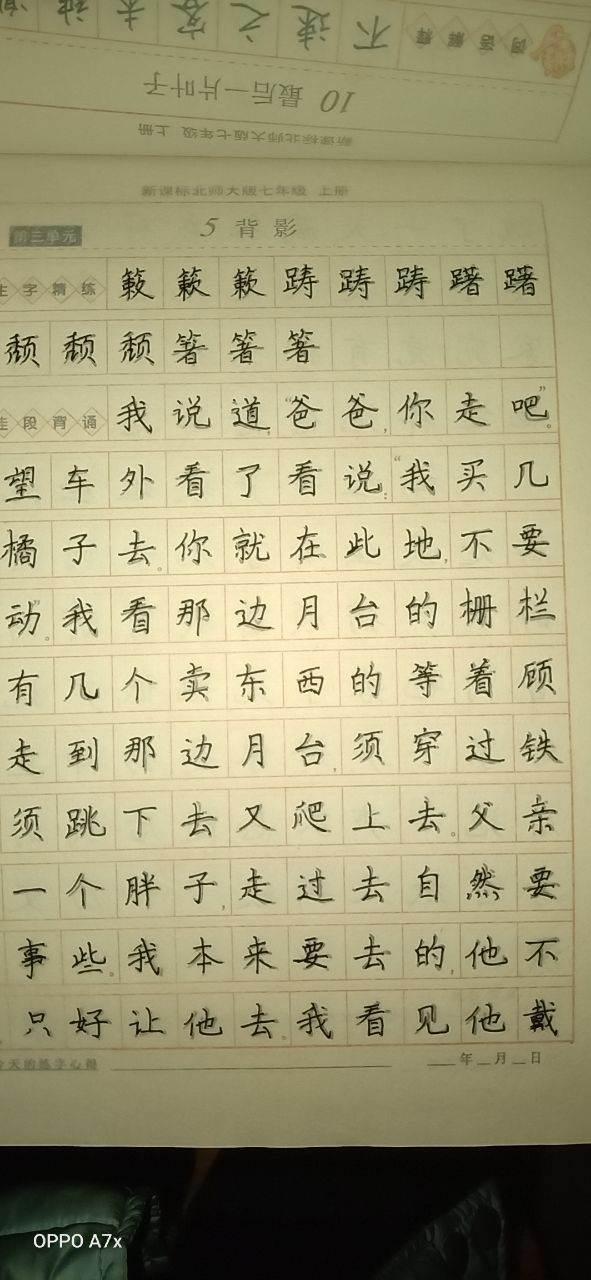 词语解释 不速之客
10 最后一片叶子
新课标北师大版七年级 上册
新课标北师大版七年级 上册
第三单元
5 背影
生字精练 簌簌簌踌踌踌躇躇
颓颓颓箸箸箸
佳段背诵 我说道，“爸爸，你走吧”。
望车外看了看说：“我买几
橘子去。你就在此地，不要
动”。我看那边月台的栅栏
有几个卖东西的等着顾
走到那边月台，须穿过铁
须跳下去又爬上去。父亲
一个胖子，走过去自然要
事些。我本来要去的，他不
只好让他去。我看见他戴
今天的练字心得
年 月 日
OPPO A7x